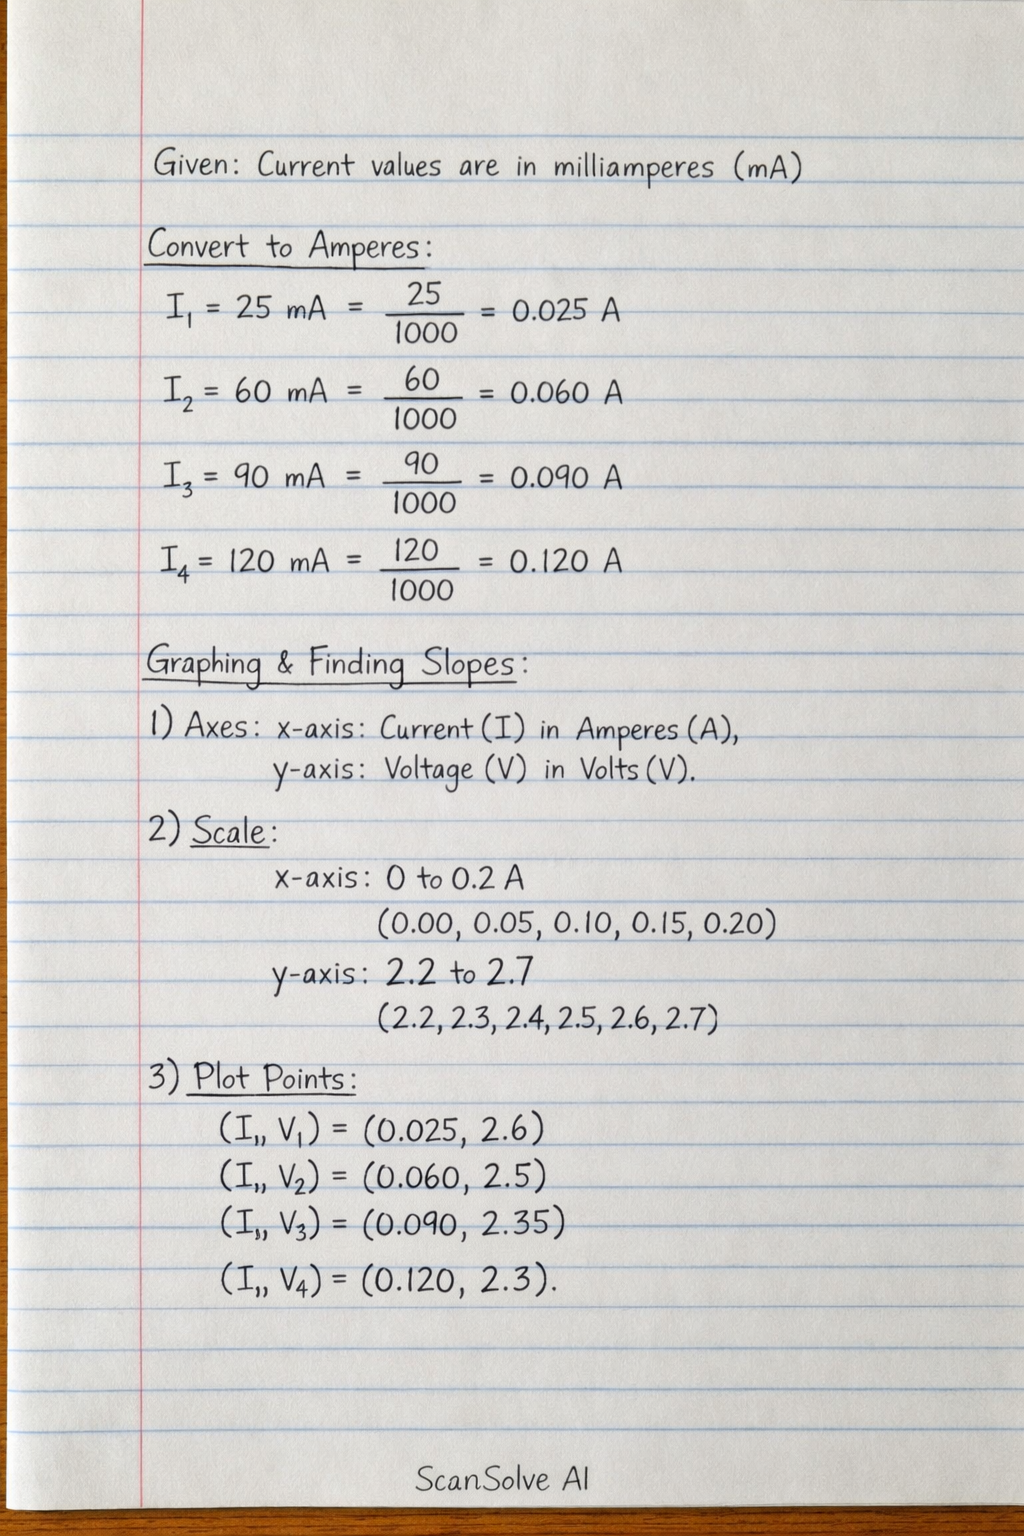 Given: Current values are in milliamperes (mA)
Convert to Amperes:
I₁ = 25 mA = 25/1000 = 0.025 A
I₂ = 60 mA = 60/1000 = 0.060 A
I₃ = 90 mA = 90/1000 = 0.090 A
I₄ = 120 mA = 120/1000 = 0.120 A
Graphing & Finding Slopes:
1) Axes: x-axis: Current (I) in Amperes (A),
y-axis: Voltage (V) in Volts (V).
2) Scale:
x-axis: 0 to 0.2 A
(0.00, 0.05, 0.10, 0.15, 0.20)
y-axis: 2.2 to 2.7
(2.2, 2.3, 2.4, 2.5, 2.6, 2.7)
3) Plot Points:
(I₁, V₁) = (0.025, 2.6)
(I₁, V₂) = (0.060, 2.5)
(I₁, V₃) = (0.090, 2.35)
(I₁, V₄) = (0.120, 2.3).
ScanSolve AI